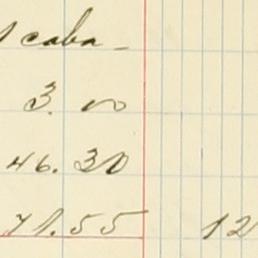 caba
3.00
46.30
71.55 12